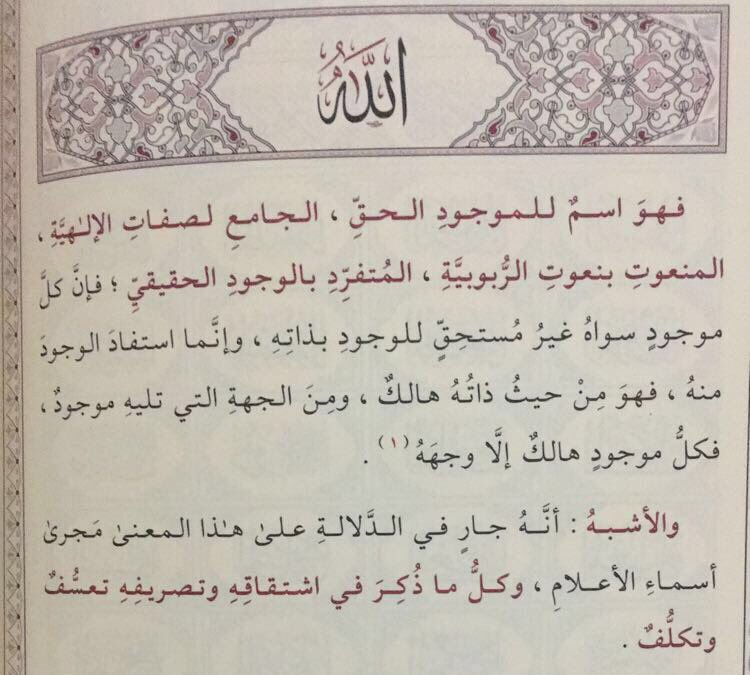 اللهُ
فهوَ اسمٌ للموجودِ الحقِّ ، الجامعِ لصفاتِ الإلٰهيَّةِ ،
المنعوتِ بنعوتِ الرُّبوبيَّةِ ، المُتفرِّدِ بالوجودِ الحقيقيِّ ؛ فإنَّ كلَّ
موجودٍ سواهُ غيرُ مُستحِقٍّ للوجودِ بذاتِهِ ، وإنَّما استفادَ الوجودَ
منهُ ، فهوَ مِنْ حيثُ ذاتُهُ هالكٌ ، ومِنَ الجهةِ التي تليهِ موجودٌ ،
فكلُّ موجودٍ هالكٌ إلَّا وجهَهُ (١) .
والأشبهُ : أنَّهُ جارٍ في الدَّلالةِ علىٰ هٰذا المعنىٰ مَجرىٰ
أسماءِ الأعلامِ ، وكلُّ ما ذُكِرَ في اشتقاقِهِ وتصريفِهِ تعسُّفٌ
وتكلُّفٌ .